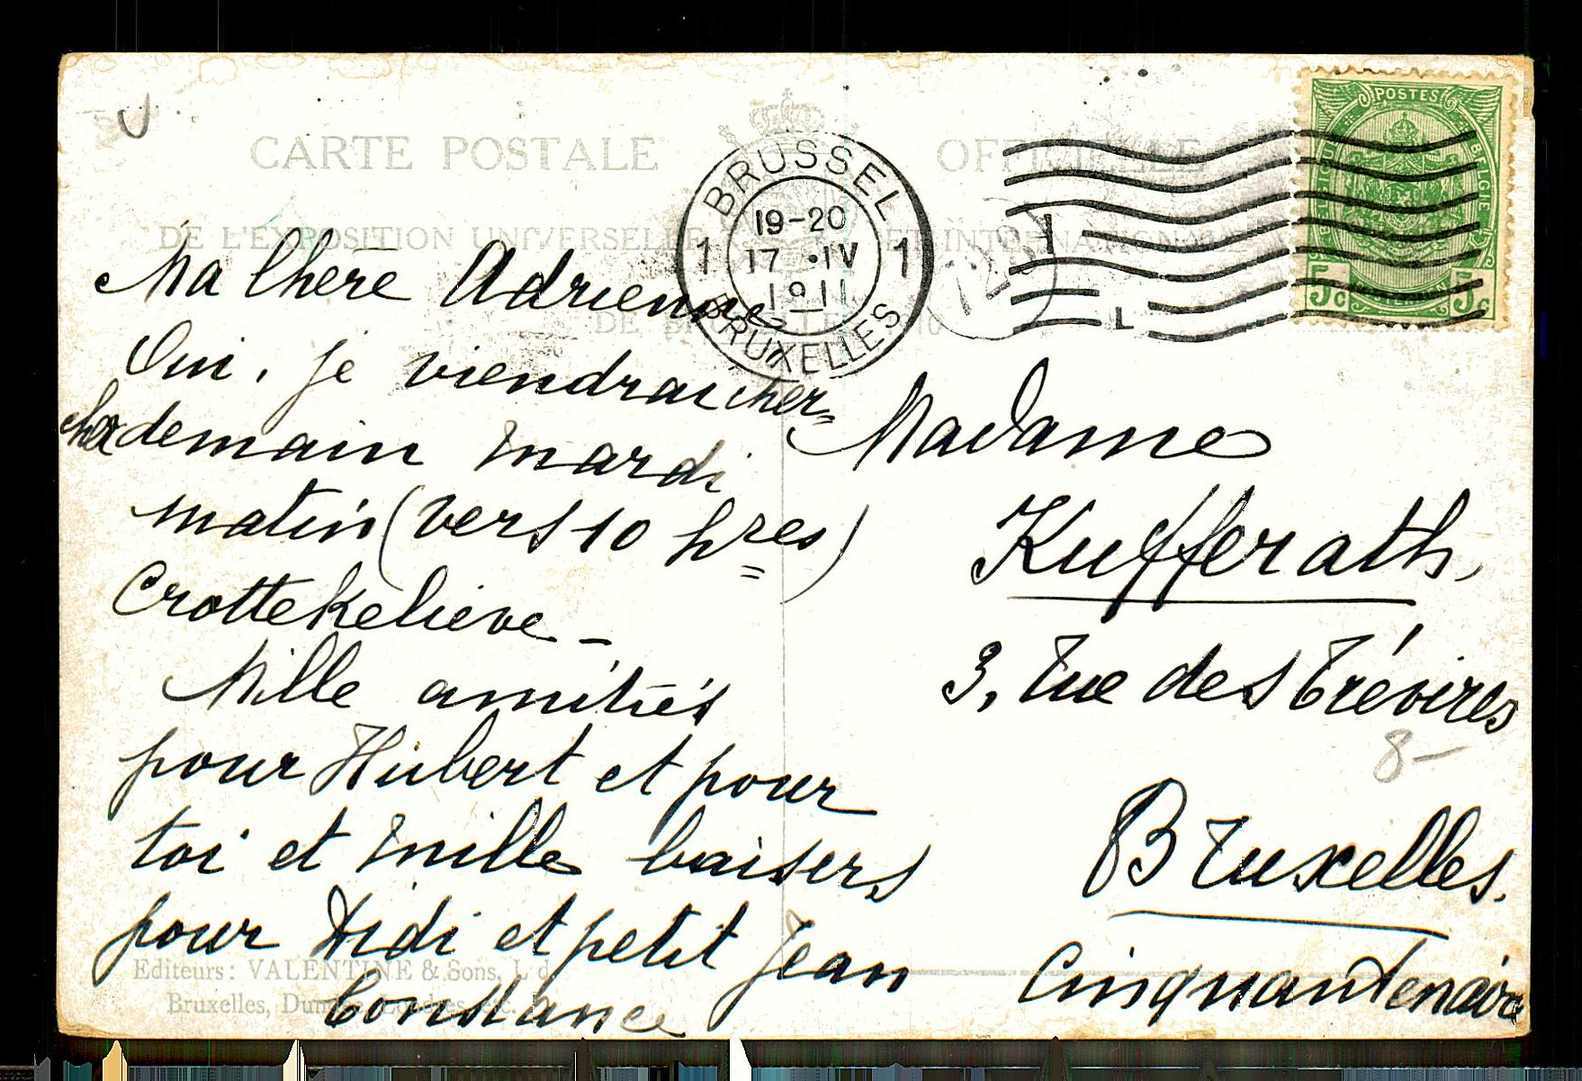 CARTE POSTALE OFFICIELLE
DE L'EXPOSITION UNIVERSELLE ET INTERNATIONALE
DE BRUXELLES 1910
BRUSSEL
1 19-20 1
17 •IV
1911
BRUXELLES
POSTES
BELGIQUE BELGIË
5c 5c
L
Ma Chère Adrienne
Oui, je viendrai cher-
cher demain mardi
matin (vers 10 hres)
Crottekelieve –
Mille amitiés
pour Hubert et pour
toi et mille baisers
pour Didi et petit Jean
Constance
Madame
Kufferath,
3, rue des Trévires
8-
Bruxelles.
Cinquantenaire
Editeurs: VALENTINE & Sons, Ld.
Bruxelles, Dundee, Londres, etc.